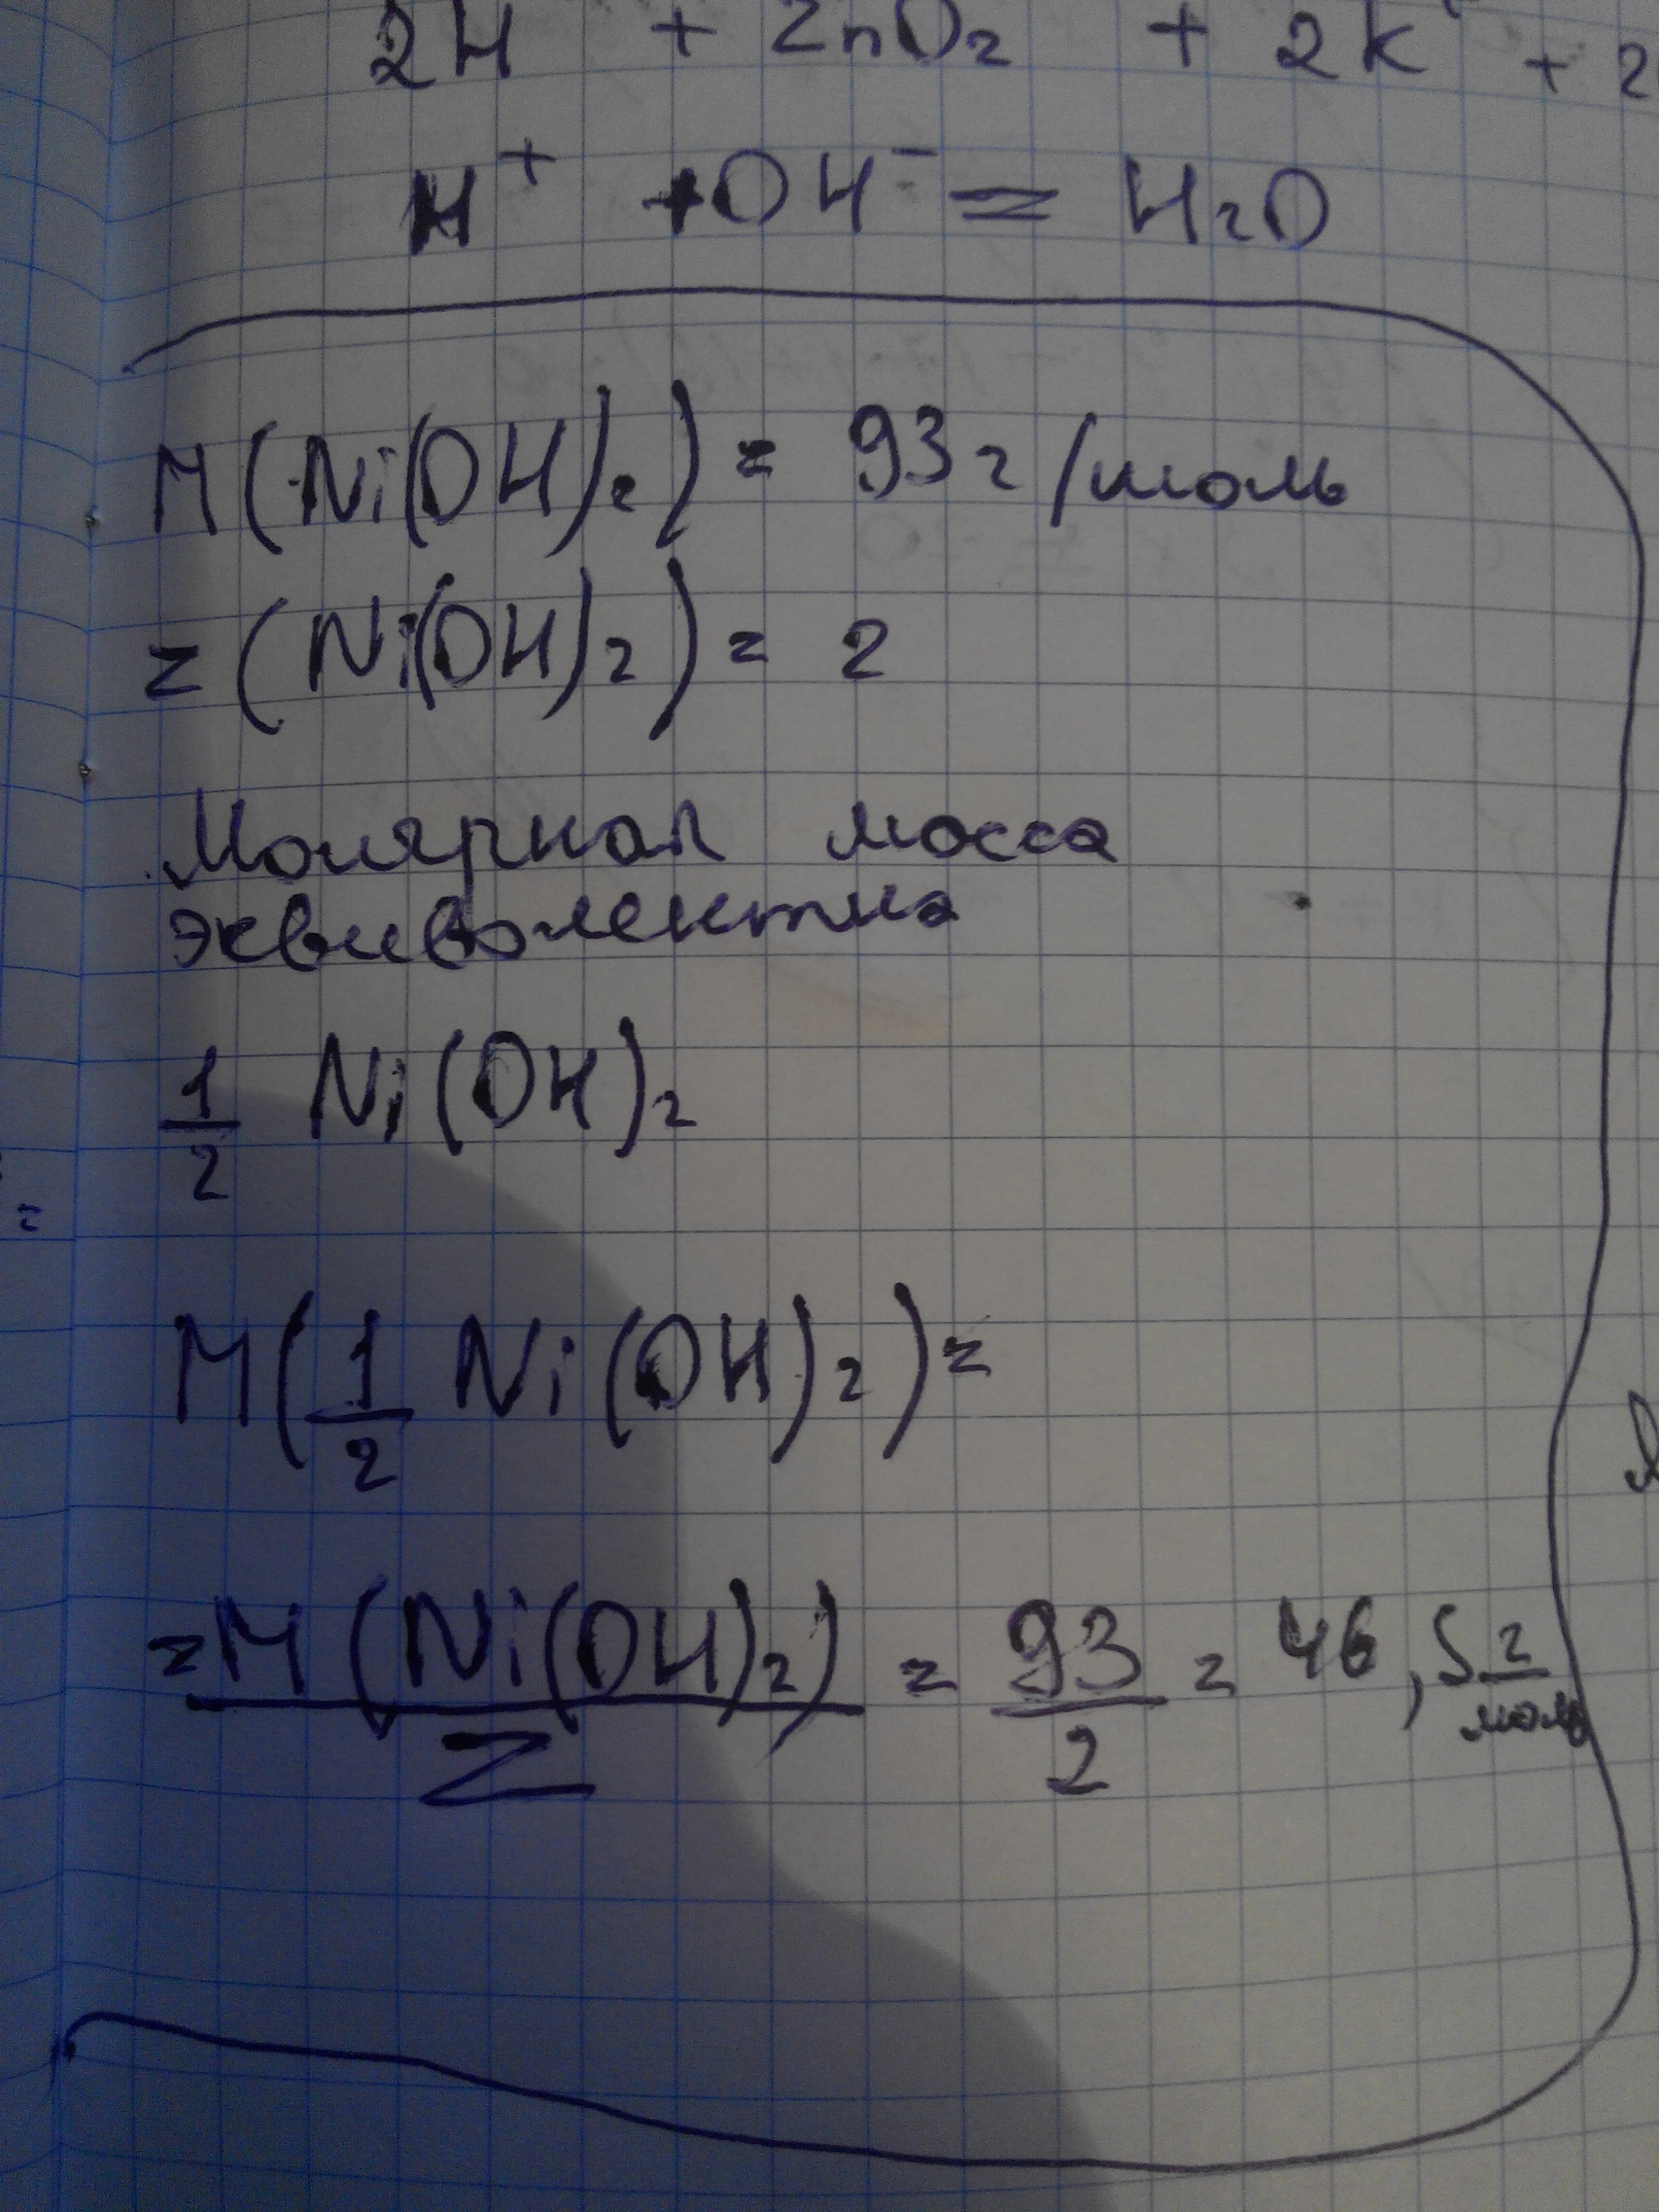 2H + ZnO₂ + 2K + 2
H⁺ + OH⁻ = H₂O
M(Ni(OH)₂) = 93 г/моль
z(Ni(OH)₂) = 2
Молярная масса
эквивалентна
1/2 Ni(OH)₂
M(1/2 Ni(OH)₂) =
= M(Ni(OH)₂)/Z = 93/2 = 46,5 г/моль
=